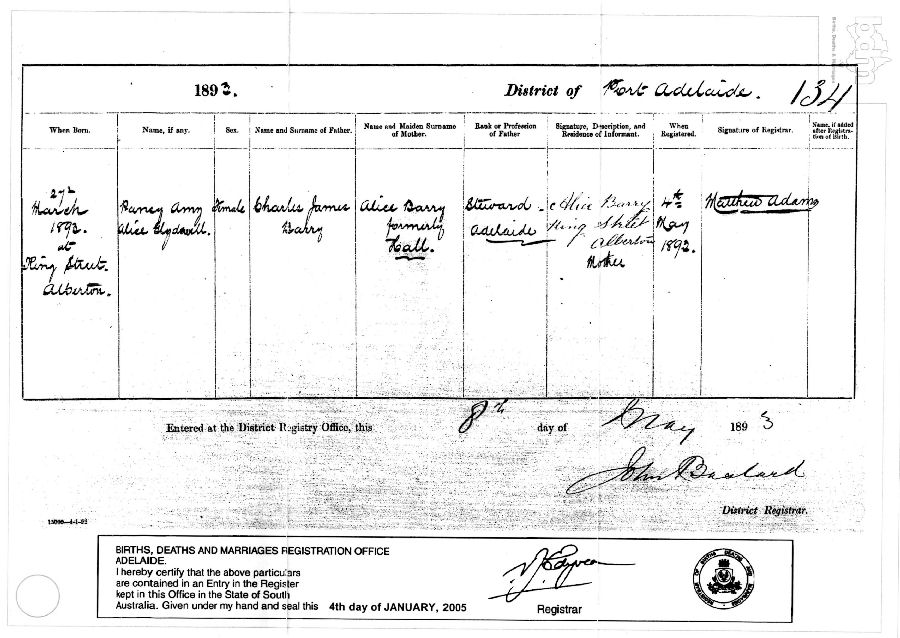 Births, Deaths & Marriages
1893.
District of Port Adelaide.
134
When Born.
Name, if any.
Sex.
Name and Surname of Father.
Name and Maiden Surname
of Mother.
Rank or Profession
of Father
Signature, Description, and
Residence of Informant.
When
Registered.
Signature of Registrar.
Name, if added
after Registra-
tion of Birth.
27th
March
1893.
at
King Street.
Alberton.
Amy
Alice
Female
Charles James
Barry
Alice Barry
formerly
Hall.
Steward
Adelaide
Alice Barry
King Street
Alberton
Mother
4th
May
1893.
Matthew Adams
Entered at the District Registry Office, this 8th day of May 1893
John
District Registrar.
BIRTHS, DEATHS AND MARRIAGES REGISTRATION OFFICE
ADELAIDE.
I hereby certify that the above particulars
are contained in an Entry in the Register
kept in this Office in the State of South
Australia. Given under my hand and seal this 4th day of JANUARY, 2005
Registrar